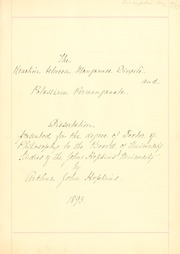 The
Reaction between Manganese Dioxide
and
Potassium Permanganate.
Dissertation.
Presented for the degree of Doctor of
Philosophy to the Board of University
Studies of the Johns Hopkins University
by
Arthur John Hopkins.
1893